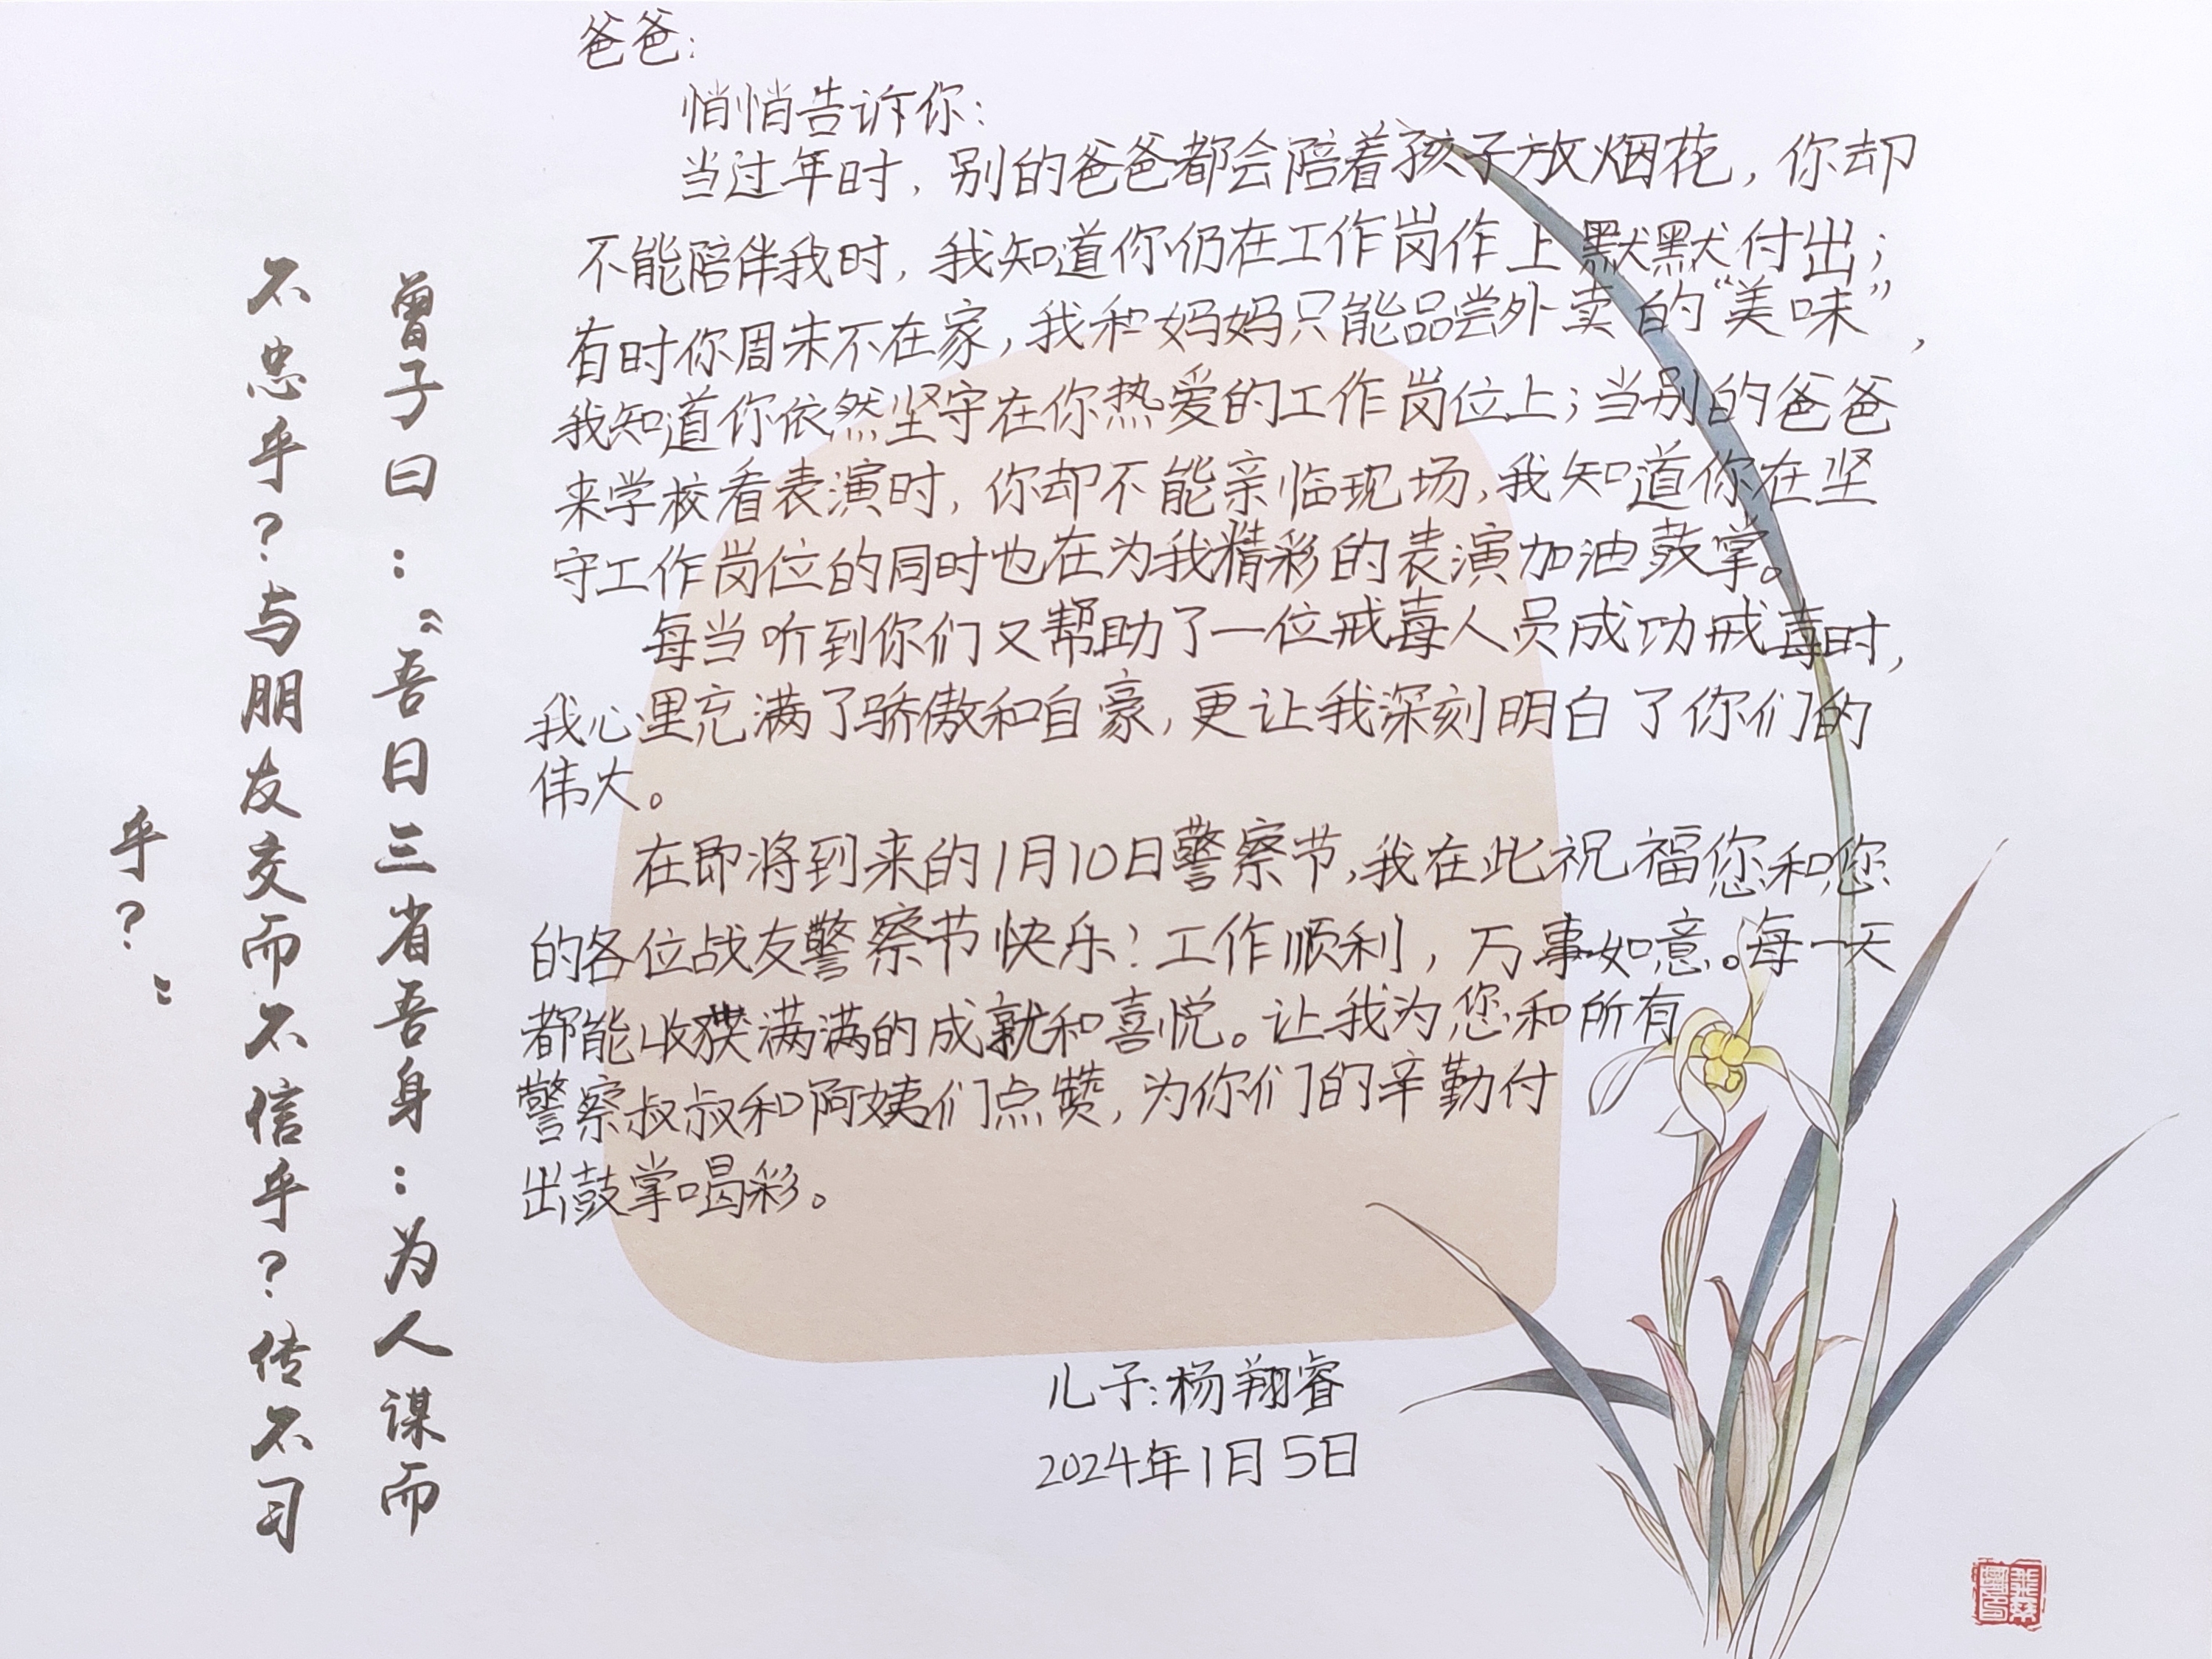 爸爸：
悄悄告诉你：
当过年时，别的爸爸都会陪着孩子放烟花，你却
不能陪伴我时，我知道你仍在工作岗作上默默付出；
有时你周末不在家，我和妈妈只能品尝外卖的“美味”，
我知道你依然坚守在你热爱的工作岗位上；当别的爸爸
来学校看表演时，你却不能亲临现场，我知道你在坚
守工作岗位的同时也在为我精彩的表演加油鼓掌。
每当听到你们又帮助了一位戒毒人员成功戒毒时，
我心里充满了骄傲和自豪，更让我深刻明白了你们的
伟大。
在即将到来的1月10日警察节，我在此祝福您和您
的各位战友警察节快乐！工作顺利，万事如意。每一天
都能收获满满的成就和喜悦。让我为您和所有
警察叔叔和阿姨们点赞，为你们的辛勤付
出鼓掌喝彩。
儿子：杨翔睿
2024年1月5日
曾子曰：“吾日三省吾身：为人谋而
不忠乎？与朋友交而不信乎？传不习
乎？”